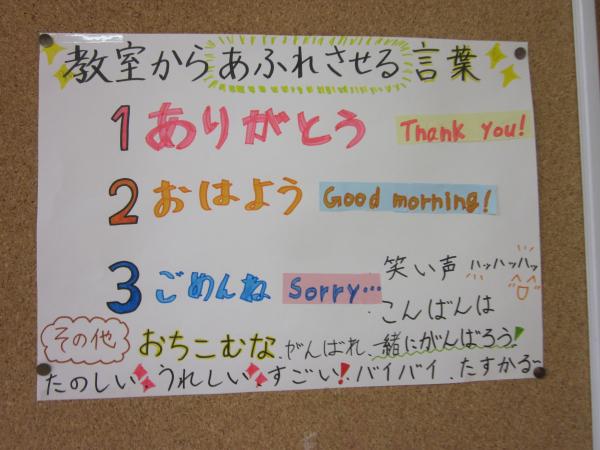 教室からあふれさせる言葉
1 ありがとう Thank you!
2 おはよう Good morning!
3 ごめんね Sorry…
笑い声 ハッハッハッ
こんばんは
その他 おちこむな、がんばれ、一緒にがんばろう!
たのしい、うれしい、すごい! バイバイ、たすかる~